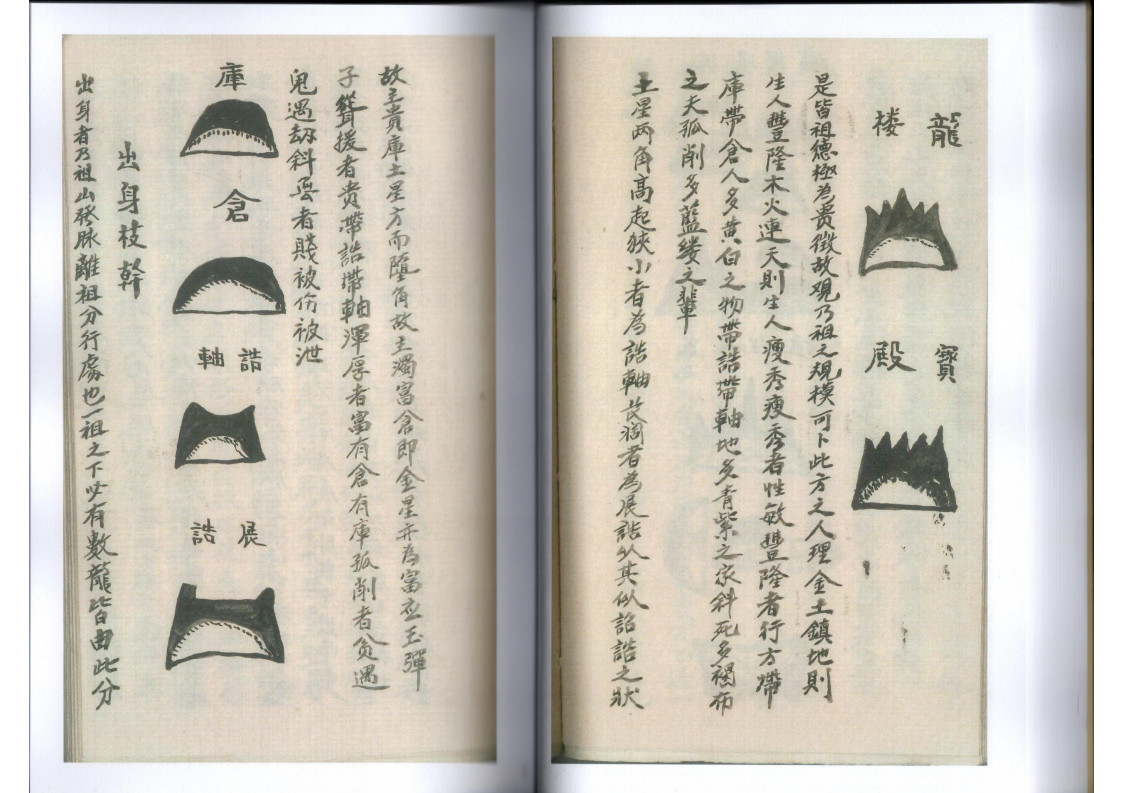 龍樓
寶殿
是皆祖德極為貴徴故观乃祖之規模可卜此方之人理金土鎮地則
生人豐隆木火連天則生人瘦秀瘦秀者性敏豐隆者行方帶
庫帶倉人多黄白之物帶誥帶軸地多青紫之家斜死多褐布
之夫孤削多藍縷之輩
土星两角高起狭小者為誥軸長濶者為展誥以其似詔誥之状
故主貴庫土星方而墮角故土濁富倉即金星亦為富应玉彈
子聳援者贵帶誥帶軸渾厚者富有倉有庫孤削者貧遇
鬼遇劫斜歪者賤被伤被泄
庫
倉
誥軸
展誥
出身枝幹
出身者乃祖山發脉離祖分行處也一祖之下必有數龍皆由此分